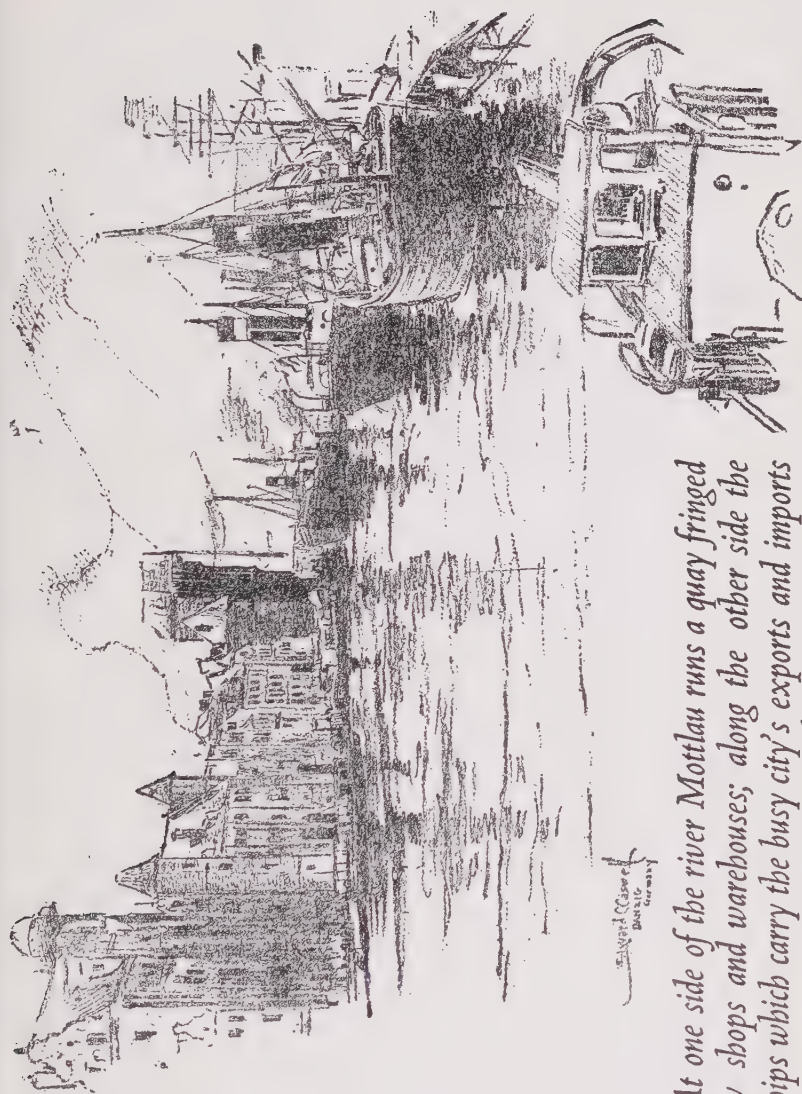 Edward C Caswell
DANZIG
Germany
At one side of the river Mottlau runs a quay fringed
shops and warehouses; along the other side the
which carry the busy city's exports and imports